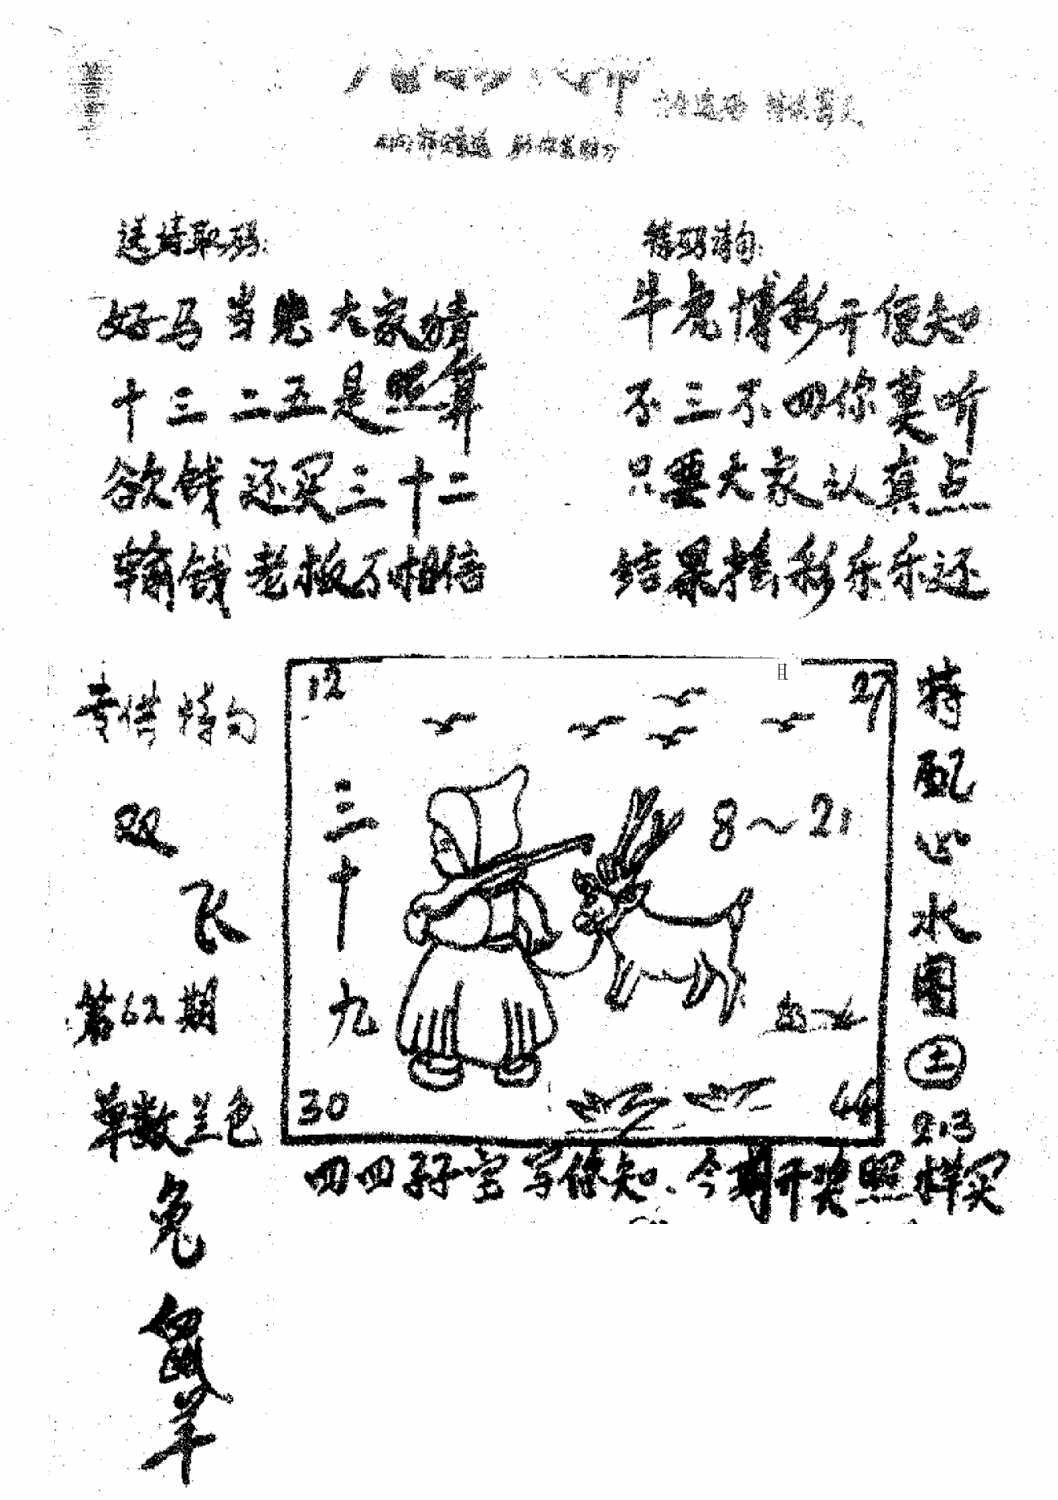 送诗取码:
好马当先大家猜
十三二五是照算
欲钱还买三十二
输钱老板不相信
特码诗句:
牛虎博彩开便知
不三不四你莫听
只要大家认真点
结果搖彩乐乐还
专供特句
双飞
第62期
单数兰色
兔
鼠
羊
12
H
27
三十九
8～21
30
44
特配心水图
土
213
四四孖字写你知、今期开奖照样买